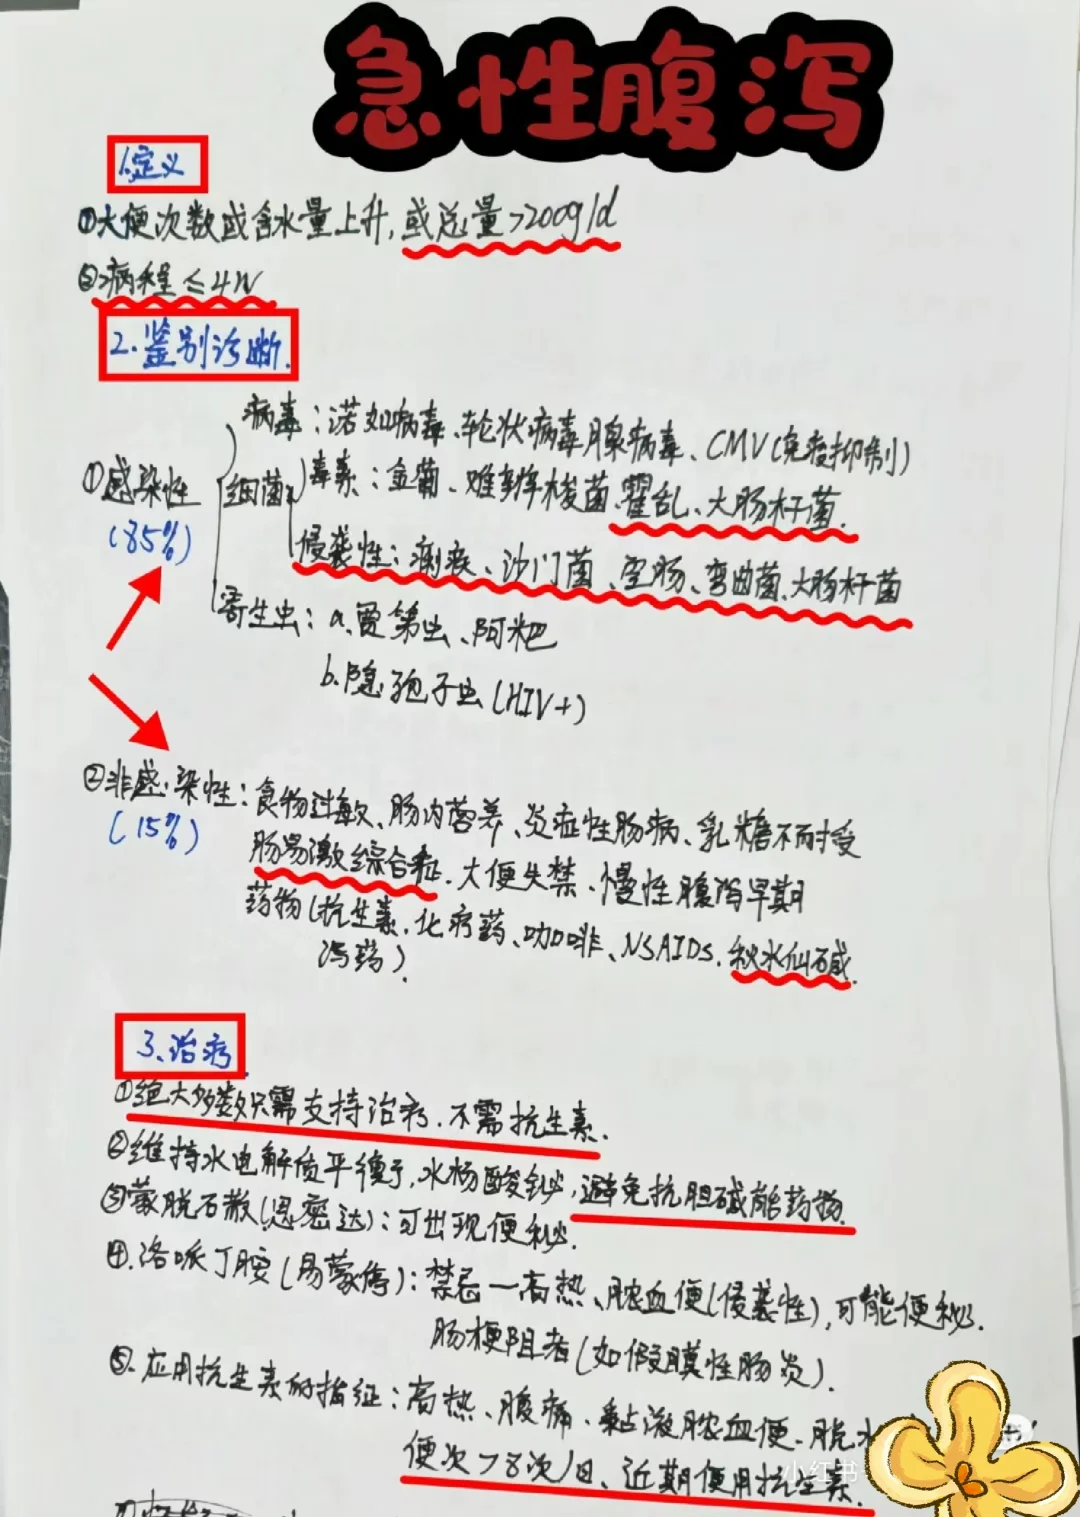 急性腹泻
1.定义
①大便次数或含水量上升,或总量>200g/d
②病程≤4W
2.鉴别诊断.
病毒:诺如病毒、轮状病毒、腺病毒、CMV(免疫抑制)
①感染性
(85%)
细菌
毒素:金菌、难辨梭菌、霍乱、大肠杆菌.
侵袭性:痢疾、沙门菌、空肠、弯曲菌、大肠杆菌
寄生虫:a.贾第虫、阿粑
b.隐孢子虫(HIV+)
②非感染性:食物过敏、肠内营养、炎症性肠病、乳糖不耐受
(15%)
肠易激综合征、大便失禁、慢性腹泻早期
药物(抗生素、化疗药、咖啡、NSAIDS.秋水仙碱.
泻药).
3.治疗
①绝大多数只需支持治疗.不需抗生素.
②维持水电解质平衡,水杨酸铋,避免抗胆碱能药物.
③蒙脱石散(思密达):可出现便秘.
④.洛哌丁胺(易蒙停):禁忌—高热、脓血便(侵袭性),可能便秘.
肠梗阻者(如假膜性肠炎).
⑤.应用抗生素的指征:高热、腹痛、黏液脓血便、脱水
便次>8次/日、近期使用抗生素.
小红书